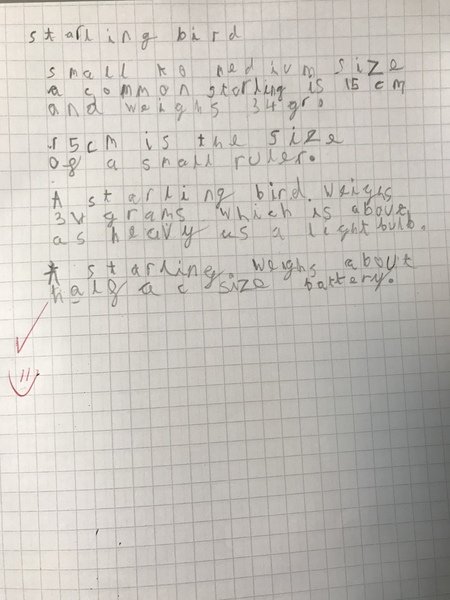 starling bird
small to nedium size
a common storling is 15 cm
and weighs 34gr.
15cm is the size
og a small ruler.
A starling bird. weighs
34 grams which is above
as heavy as a lightbulb.
A starling. weighs about
halg a c size battery.